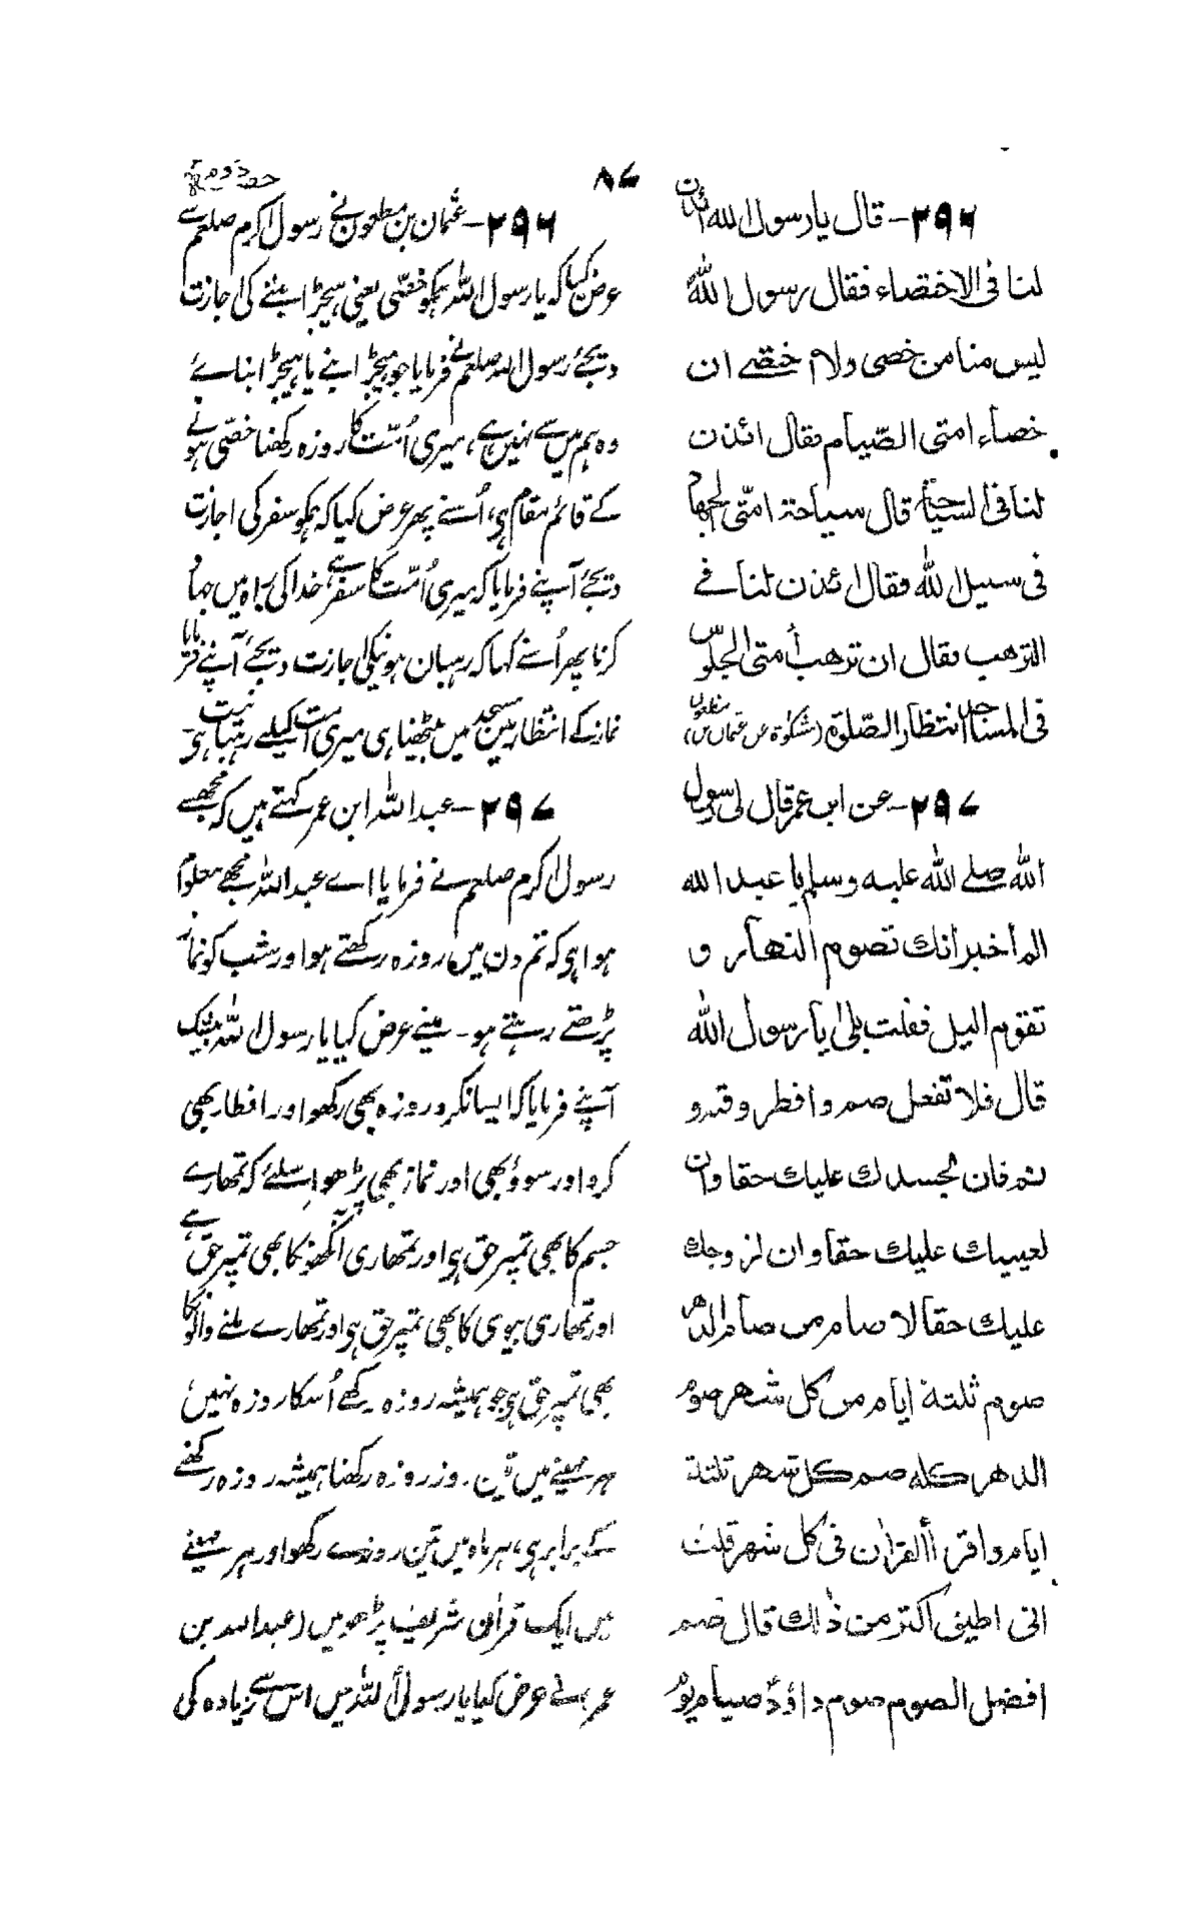 ۸۷
حصہ دوم
۲۹۶- قال یا رسول الله ائذن
لنا فی الاختصاء فقال رسول الله
لیس منا من خصی ولا م خصے ان
خصاء امتی الصّیام فقال ائذن
لنا فی السیاحة قال سیاحة امّتی الجهاد
فی سبیل الله فقال ائذن لنا فے
الترهب فقال ان ترهب أمتی الجلوس
فی المساجد انتظار الصّلوة (مشکوٰة عن عثمان بن مظعون)
۲۹۷- عن ابن عمر قال لی رسول
الله صلے الله علیه وسلم یا عبد الله
الم أخبر انك تصوم النهار و
تقوم الیل فقلت بلیٰ یا رسول الله
قال فلا تفعل صم وافطر وقم و
نم فان لجسدك علیك حقا وان
لعینیك علیك حقا وان لزوجك
علیك حقا لا صام من صام الدهر
صوم ثلثة ایام من کل شهر صوم
الدهر کله صم کل شهر ثلثة
ایام واقرأ القراٰن فی کل شهر قلت
انی اطیق اکثر من ذٰلك قال صم
افضل الصوم صوم داؤد صیام یوم
۲۹۶- عثمان بن مظعون نے رسول اکرم صلعم سے
عرض کیا کہ یا رسول اللہ ہمکو خصّی یعنی ہیجڑا بننے کی اجازت
دیجئے رسول اللہ صلعم نے فرمایا جو ہیجڑا بنے یا ہیجڑا بنائے
وہ ہم میں سے نہیں ہے، میری اُمّت کا روزہ رکھنا خصّی ہونے
کے قائم مقام ہی، اُسنے پھر عرض کیا کہ ہمکو سفر کی اجازت
دیجئے آپنے فرمایا کہ میری اُمّت کا سفر ہے خدا کی راہ میں جہاد
کرنا پھر اُسنے کہا کہ رہبان ہونیکی اجازت دیجئے آپنے فرمایا
نماز کے انتظار میں مسجد میں بیٹھنا ہی میری امت کیلئے رہبانیت ہی
۲۹۷- عبد اللہ ابن عمر کہتے ہیں کہ مجھسے
رسول اکرم صلعم نے فرمایا اے عبد اللہ مجھے معلوم
ہوا ہی کہ تم دن میں روزہ رکھتے ہو اور شب کو نماز
پڑھتے رہتے ہو۔ مینے عرض کیا یا رسول اللہ بیشک
آپنے فرمایا کہ ایسا نکرو روزہ بھی رکھو اور افطار بھی
کرو اور سوؤ بھی اور نماز بھی پڑھو اسلئے کہ تمھارے
جسم کا بھی تمپر حق ہی اور تمھاری آنکھونکا بھی تمپر حق ہے
اور تمھاری بیوی کا بھی تمپر حق ہی اور تمھارے ملنے والونکا
بھی تمپر حق ہی جو ہمیشہ روزہ رکھے اُسکا روزہ نہیں
ہر مہینے میں تین روز روزہ رکھنا ہمیشہ روزہ رکھنے
کے برابر ہی، ہر ماہ میں تین روزے رکھو اور ہر مہینے
میں ایک قراٰن شریف پڑھو میں (عبد اللہ بن
عمر) نے عرض کیا یا رسول اللہ میں اس سے زیادہ کی